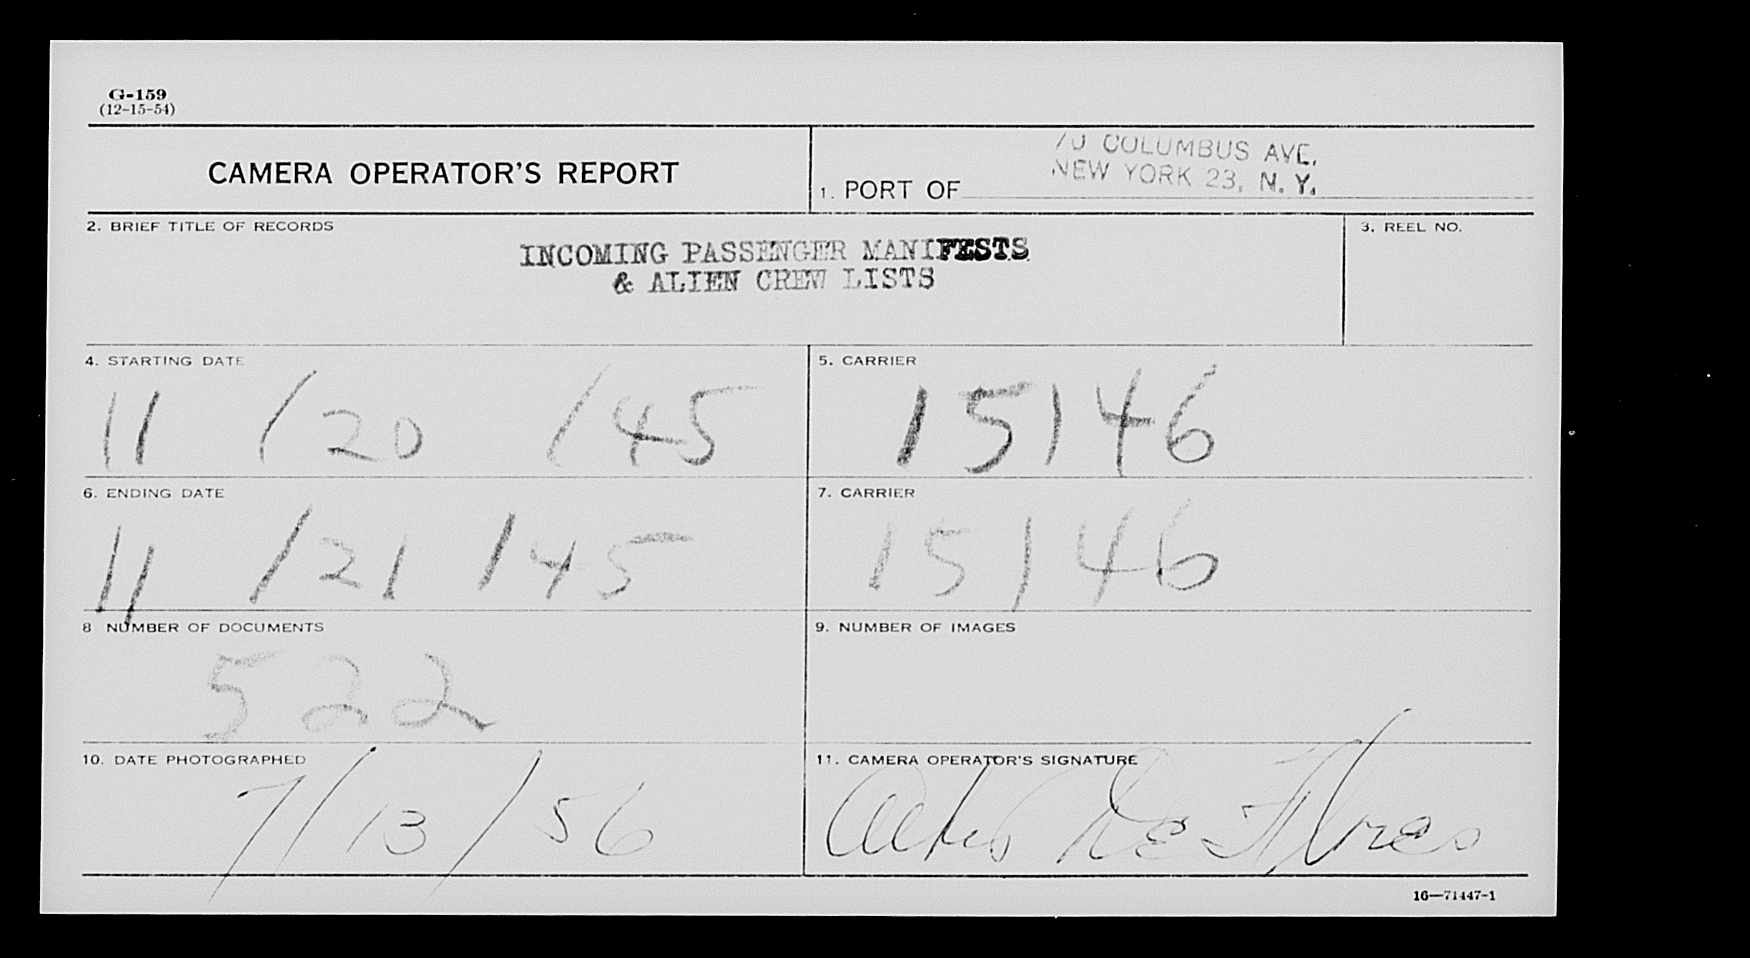 G-159
(12-15-54)
CAMERA OPERATOR'S REPORT
70 COLUMBUS AVE.
NEW YORK 23, N. Y.
1. PORT OF
2. BRIEF TITLE OF RECORDS
INCOMING PASSENGER MANIFESTS
& ALIEN CREW LISTS
3. REEL NO.
4. STARTING DATE
11 / 20 / 45
5. CARRIER
15146
6. ENDING DATE
11 / 21 / 45
7. CARRIER
15146
8 NUMBER OF DOCUMENTS
522
9. NUMBER OF IMAGES
10. DATE PHOTOGRAPHED
7/13/56
11. CAMERA OPERATOR'S SIGNATURE
De Flores
16—71447-1